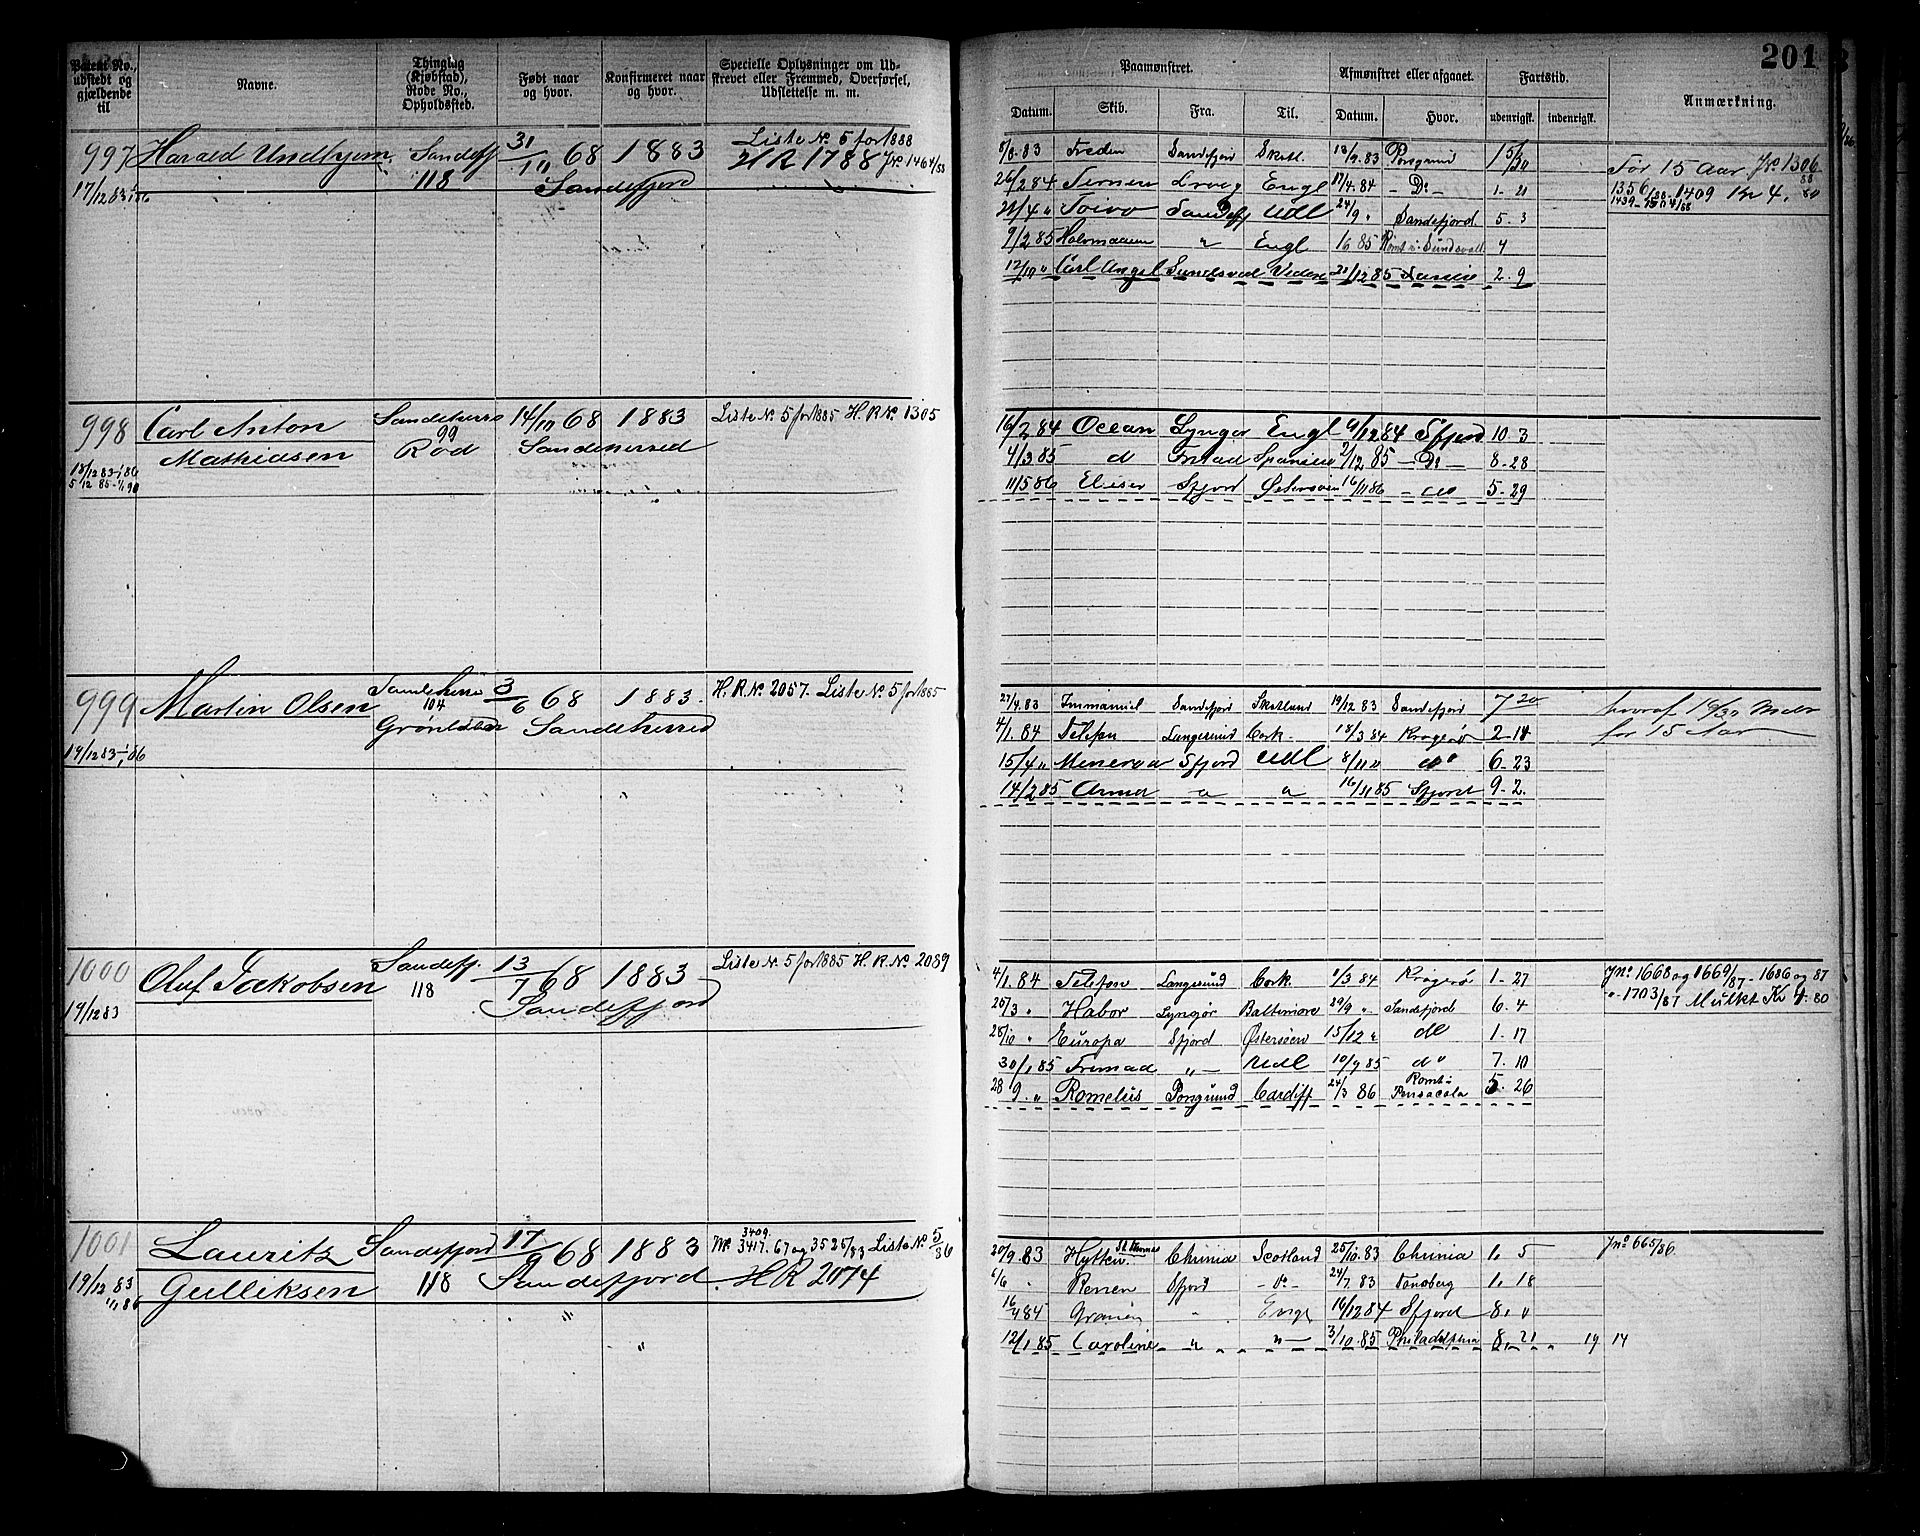 201
Patent No., udstedt og gjældende til
Navne.
Thinglag (Kjøbstad), Rode No., Opholdssted.
Født naar og hvor.
Konfirmeret naar og hvor.
Specielle Oplysninger om Udskrevet eller Fremmed, Overførsel, Udslettelse m. m.
Paamønstret.
Afmønstret eller afgaaet.
Fartstid.
Anmærkning.
Datum.
Skib.
Fra.
Til.
Datum.
Hvor.
udenrigsk.
indenrigsk.
997 Harald Undhjem Sandeff 31/11 68 1883 Liste No. 5 for 1888
17/12 83 118 Sandefjord HR 1788 Jno. 1464/88
83 Sandefjord Skotl. 83 Porsgrund
For 15 Aar Jno. 1306/88
26/2 84 Ternen Engl 17/4 84 - Do - 1. 21
1356/88 1409 Kr 4. 80
Toivo Sandeff Udl 24/9 " Sandefjord 5. 3
9/2 85 " Engl 85 Sundsvall 4
12/10 " Carl Angel Sundsvall 21/12 85 2. 9
998 Carl Anton Sandeherre 14/10 68 1883 Liste No. 5 for 1885 H. R. No. 1305
Mathiasen 99 Rød Sandeherred
18/12 83 - 1/1 86
5/12 85 - 1/1 90
16/2 84 Ocean Lyngør Engl 84 Sfjord 10. 3
4/3 85 d Spanien 2/12 85 - Do - 8 - 28
11/5 86 Elieser Sfjord Østersøen 16/11 86 - do 5. 29
999 Martin Olsen Sandeherre 3/6 68 1883. H. R. No. 2057. Liste No. 5 for 1885
104 Sandeherred
19/12 83 - 1/1 86
27/4. 83 Immanuel Sandefjord Skotland 19/12 83 Sandefjord 7 20
hvoraf
for 15 Aar
4/1. 84 Telefon Langesund Cork. 18/3 84 Kragerø
15/4 " Minerva Sfjord Udl 8/11 " do 6. 23
14/2 85 16/11 85 Sfjord 9 - 2.
1000 Oluf Jakobsen Sandeff. 13/7 68 1883 Liste No. 5 for 1885 H. R. No. 2089
19/12 83 118 Sandefjord
4/1. 84 Telefon Langesund Cork. 1/3 84 Kragerø 1. 27
Jno. 1668 og 1669/87 - 1686 og 87
" 1703/87 Mulkt Kr 4. 80
" Habor Lyngør Baltimore 29/9 " Sandefjord 6. 4
28/10 " Europa Sfjord Østersøen 15/12 " do 1. 17
30/1 85 Fremad " - Udl 10/9 85 do 7. 10
28/9. " Romelus Porsgrund Cardiff 24/3 86 Romt i Pensacola 5. 26
1001 Lauritz Sandefjord 17/9 68 1883 3409. 3417. 67 og 3525/83 Liste No. 5/86
19/12 83 Gulliksen 118 Sandefjord. HR 2074
1/1 86
20/9. 83 Hytten Chrinia Scotland 25/10. 83 Chrinia 1. 5
Jno. 665/86
6/6 Sfjord - Do - 24/7 83 Tønsberg 1. 18
84 Engl 16/12 84 Sfjord 8.
12/1. 85 Caroline " " - 3/10. 85 Philadelphia 8. 21 19 14